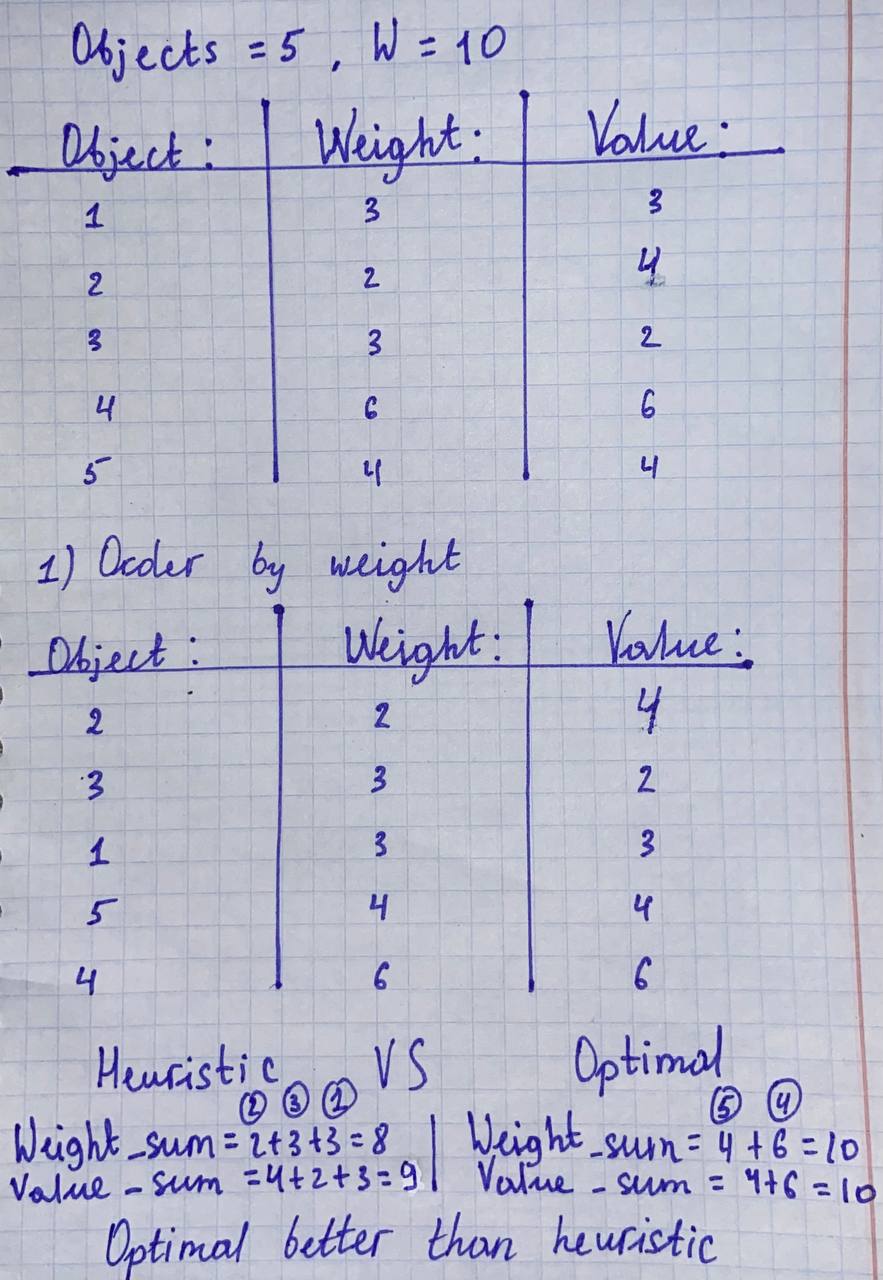 Objects = 5 , W = 10
Object : Weight : Value :
1 3 3
2 2 4
3 3 2
4 6 6
5 4 4
1) Order by weight
Object : Weight : Value :
2 2 4
3 3 2
1 3 3
5 4 4
4 6 6
Heuristic VS Optimal
② ③ ① ⑤ ④
Weight_sum = 2+3+3=8 | Weight_sum = 4+6=10
Value_sum = 4+2+3=9 | Value_sum = 4+6=10
Optimal better than heuristic